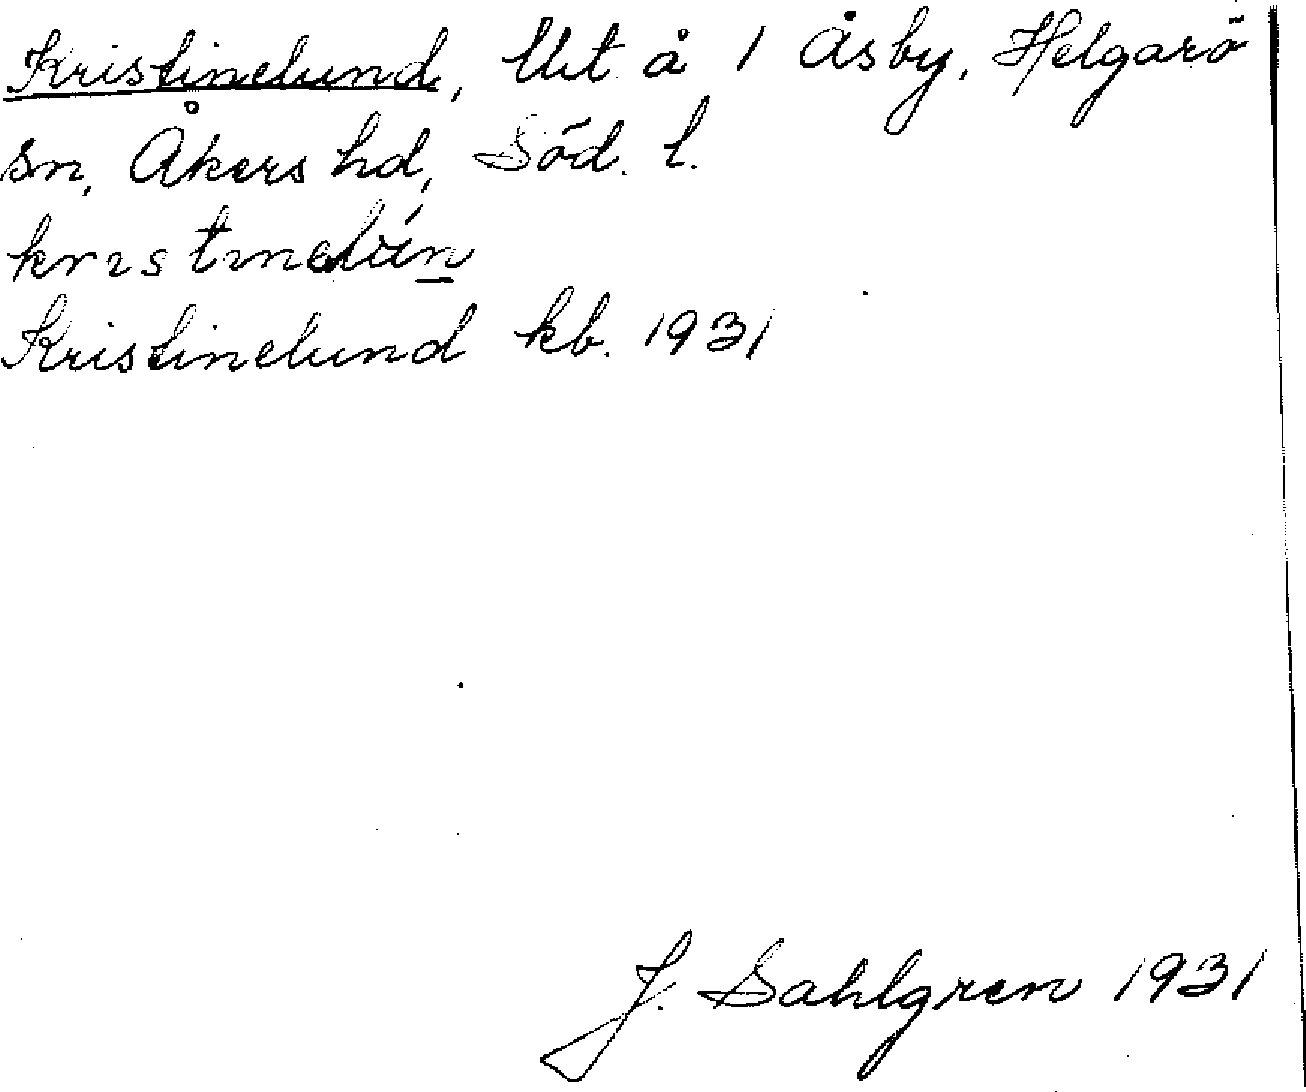 Kristinelund, lht å 1 Åsby, Helgarö
sn, Åkers hd, Söd. l.
Kristinelund kb. 1931
J. Sahlgren 1931